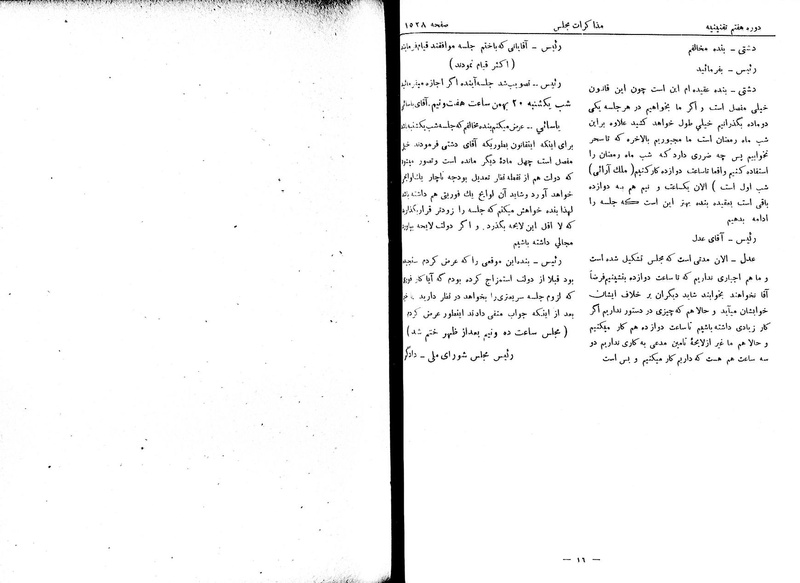 دوره هفتم تقنینیه
مذاکرات مجلس
صفحه ۱۵۲۸
دشتی - بنده مخالفم
رئیس - بفرمائید
دشتی - بنده عقیده ام این است چون این قانون
خیلی مفصل است و اگر ما بخواهیم در هر جلسه یکی
دو ماده بگذرانیم خیلی طول خواهد کشید علاوه براین
شب ماه رمضان است ما مجبوریم بالاخره که تا سحر
نخوابیم پس چه ضرری دارد که شب ماه رمضان را
استفاده کنیم واقعا تا ساعت دوازده کار کنیم ( ملك آرائی)
شب اول است ) الان یکساعت و نیم هم به دوازده
باقی است بعقیده بنده بهتر این است که جلسه را
ادامه بدهیم
رئیس - آقای عدل
عدل - الان مدتی است که مجلس تشکیل شده است
و ما هم اجباری نداریم که تا ساعت دوازده بنشینیم فرضاً
آقا نخواهند بخوابند شاید دیگران بر خلاف ایشان
خوابشان میآید و حالا هم که چیزی در دستور نداریم اگر
کار زیادی داشته باشیم تا ساعت دوازده هم کار میکنیم
و حالا هم ما غیر از لایحهٔ تامین مدعی به کاری نداریم دو
سه ساعت هم هست که داریم کار میکنیم و بس است
رئیس - آقایانی که باختم جلسه موافقند قیام فرمایند
( اکثر قیام نمودند )
رئیس .. تصویب شد جلسه آینده اگر اجازه میفرمائید
شب یکشنبه ۲۰ بهمن ساعت هفت ونیم . آقای یاسائی
یاسائی .. عرض میکنم بنده مخالفم که جلسه شب یکشنبه باشد
برای اینکه اینقانون بطوریکه آقای دشتی فرمودند خیلی
مفصل است چهل مادهٔ دیگر مانده است و تصور میشود
که دولت هم از نقطه نظر تعدیل بودجه ناچار یك لوایحی
خواهد آورد و شاید آن لوایح یك فوریتی هم داشته باشد
لهذا بنده خواهش میکنم که جلسه را زودتر قرار بگذارند
که لا اقل این لایحه بگذرد . و اگر دولت لایحه بیاورد
مجالی داشته باشیم
رئیس - بنده این موقعی را که عرض کردم سنجیده
بود قبلا از دولت استمزاج کرده بودم که آیا کار فوری
که لزوم جلسه سریعتری را بخواهد در نظر دارید یا خیر
بعد از اینکه جواب منفی دادند اینطور عرض کردم
( مجلس ساعت ده ونیم بعد از ظهر ختم شد )
رئیس مجلس شورای ملی - دادگر
— ۱٦ —